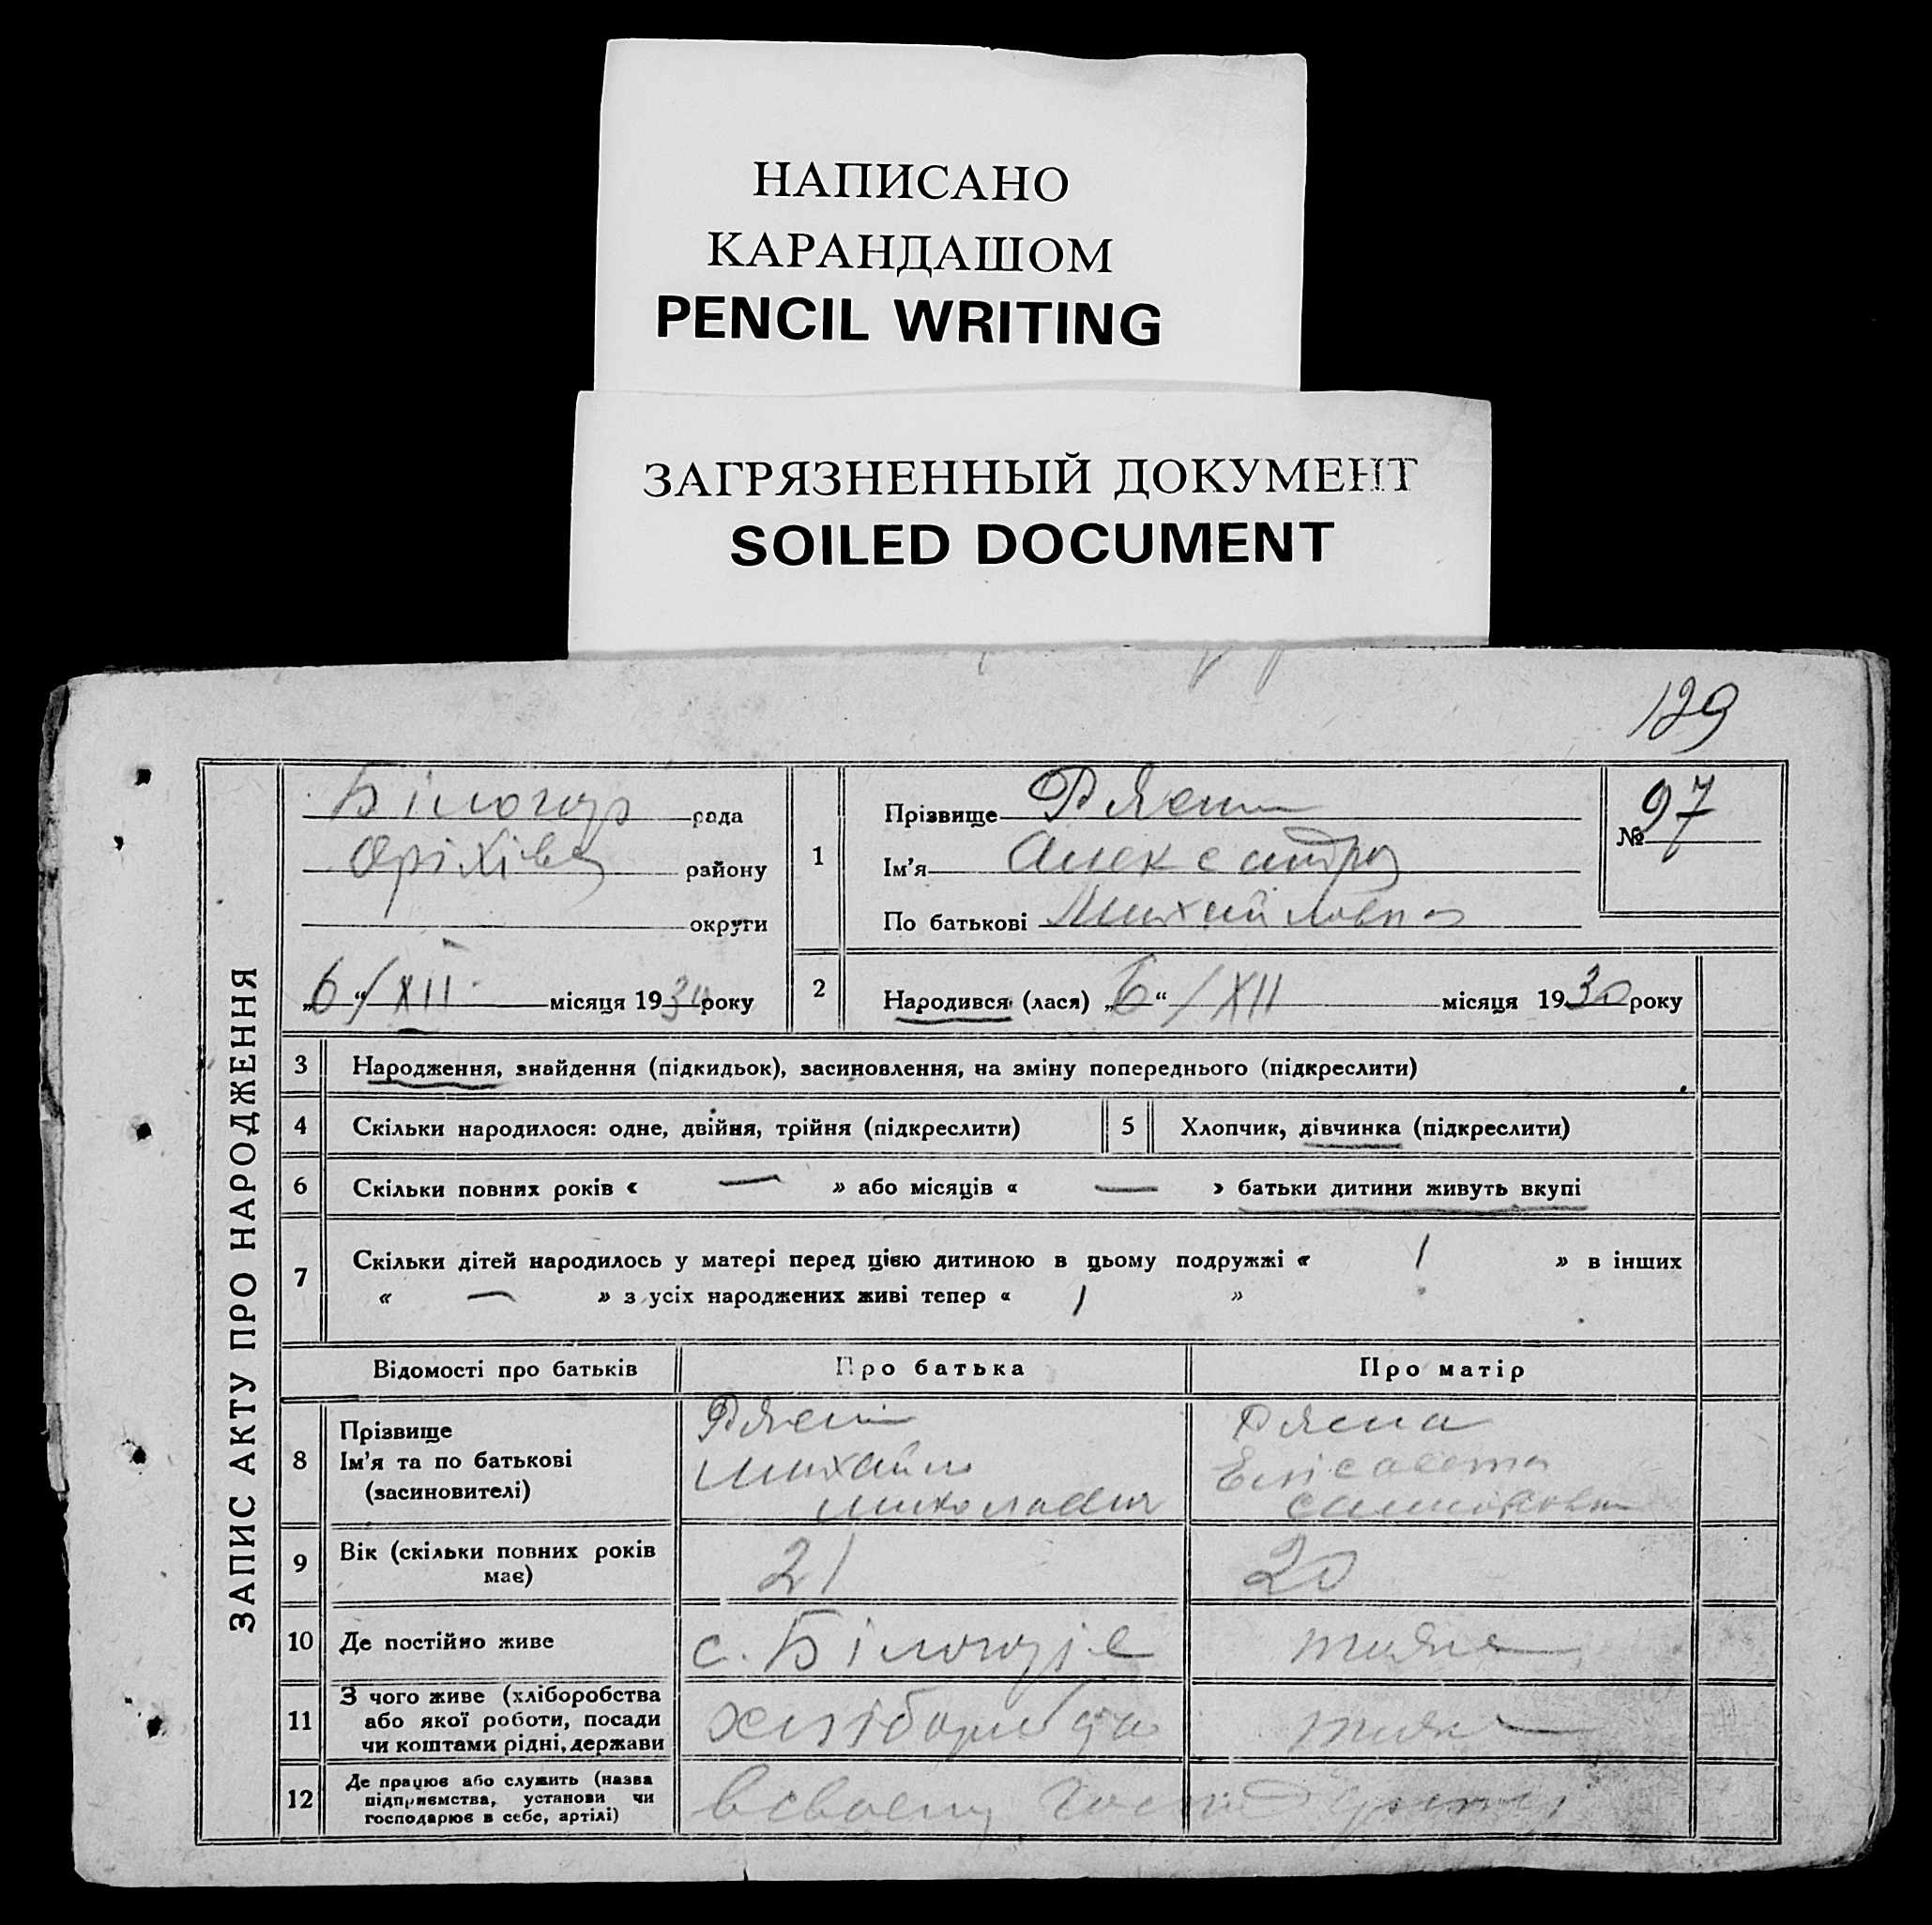 НАПИСАНО
КАРАНДАШОМ
PENCIL WRITING
ЗАГРЯЗНЕННЫЙ ДОКУМЕНТ
SOILED DOCUMENT
129
ЗАПИС АКТУ ПРО НАРОДЖЕННЯ
Білогор рада
Оріхівс району
округи
„6“/XII місяця 1930 року
1
Прізвище
Ім’я Александра
По батькові Михайловна
№ 97
2
Народився (лася) „6“ /XII місяця 1930 року
3 Народження, знайдення (підкидьок), засиновлення, на зміну попереднього (підкреслити)
4 Скільки народилося: одне, двійня, трійня (підкреслити) 5 Хлопчик, дівчинка (підкреслити)
6 Скільки повних років « — » або місяців « — » батьки дитини живуть вкупі
7 Скільки дітей народилось у матері перед цією дитиною в цьому подружжі « 1 » в інших
« — » з усіх народжених живі тепер « 1 »
Відомості про батьків Про батька Про матір
8 Прізвище
Ім’я та по батькові
(засиновителі)
Михайло
Николаевич
Елісавета
9 Вік (скільки повних років
має)
21 20
10 Де постійно живе с. Білогорје тоже
11 З чого живе (хліборобства
або якої роботи, посади
чи коштами рідні, держави
хлібороб тоже
12 Де працює або служить (назва
підприємства, установи чи
господарює в себе, артілі)
в своему